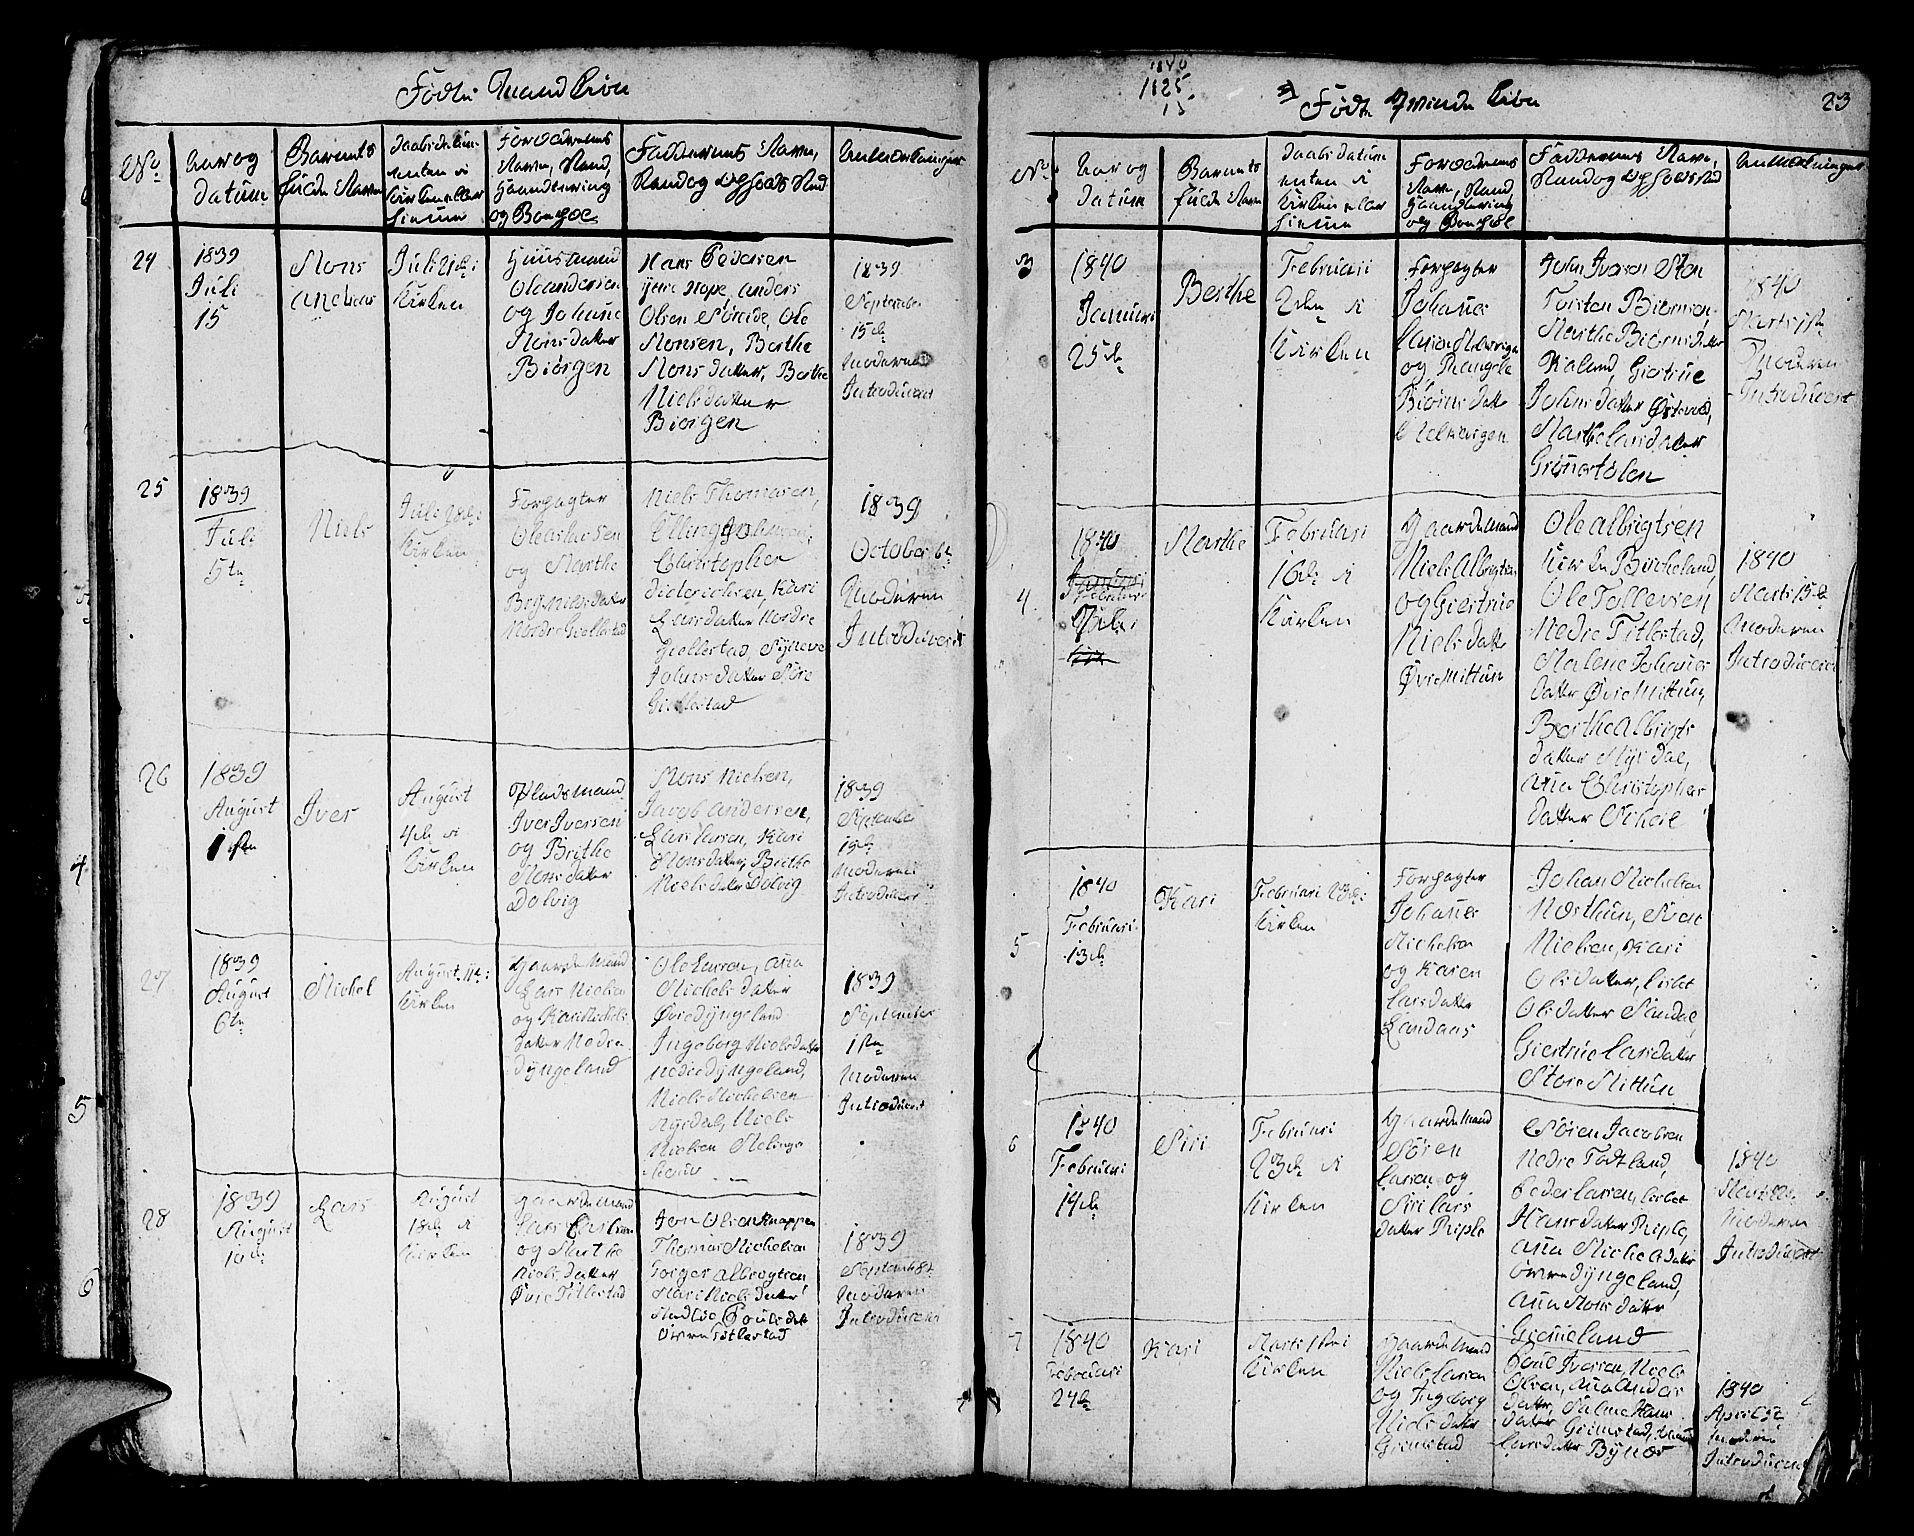 Fødte Mandkiøn
No
Aar og
Datum
Barnets
fulde Navn
Daabs datum
enten i
Kirken eller
hiemme
Forældrenes
Navn, Stand,
Haandtering
og Boepæl
Faddernes Navn,
Stand og Opholdssted
Anmærkninger
24
1839
Juli
15
Mons
Andreas
Juli 21de i
Kirken
Huusmand
Ole Andersen
og Johanne
Monsdatter
Biørgen
Hans Pedersen
Hope, Anders
Olsen Søreide, Ole
Monsen, Berthe
Monsdatter, Berthe
Nielsdatter
Biørgen
1839
September
15de
Moderen
Introduceret
25
1839
Juli
5te
Niels
Juli 28de i
Kirken
Forpagter
Ole Larsen
og Marthe
Nielsdatter
Nordre Giellestad
Niels Thomasen,
Elling Johannesen,
Christopher
Diderichsen, Kari
Larsdatter Nordre
Giellestad, Synneve
Johnsdatter Søre
Giellestad
1839
October 6te
Moderen
Introduceret
26
1839
August
1ste
Iver
August
4de i
Kirken
Pladsmand
Iver Iversen
og Brithe
Monsdatter
Dolvig
Mons Nielsen,
Jacob Andersen,
Lars Larsen, Kari
Monsdatter, Brithe
Nielsdatter Dolvig
1839
September
15de
Moderen
Introduceret
27
1839
August
6te
Michel
August 11te i
Kirken
Gaardmand
Lars Nielsen
og Kari Michels
datter Nedre
Dyngeland
Ole Larsen, Ana
Michelsdatter
Øvre Dyngeland
Ingeborg Nielsdatter
Nedre Dyngeland,
Niels Michelsen
Myrdal, Niels
Nielsen
1839
September
1ste
Moderen
Introduceret
28
1839
August
10de
Lars
August
18de i
Kirken
Gaardmand
Lars
og Marthe
Nielsdatter
Øvre Titlestad
Jon Olsen Knappen
Thomas Michelsen
Torger Albregtsen,
Mari Nielsdatter
Poulsdatter
Titlestad
1839
September
Moderen
Introduceret
1840
1825
15
Fødte Qvindekiøn
23
No
Aar og
Datum
Barnets
fulde Navn
Daabs datum
enten i
Kirken eller
hiemme
Forældrenes
Navn, Stand
Haandtering
og Boepæl
Faddernes Navn,
Stand og Opholdssted
Anmærkninger
3
1840
Januari
25de
Berthe
Februari
2den i
Kirken
Forpagter
Johannes
Larsen
og Rangele
Biørnsdatter
Helldrigen
John Iversen Sten
Torsten Biørnsen,
Marthe Biørnsdatter
Kaland, Giertrue
Johnsdatter Østevold,
Marthe Larsdatter
1840
Marts 15de
Moderen
Introduceret
4
1840
Februari
7de
Marthe
Februari
16de i
Kirken
Gaardmand
Niels Albrigtsen
og Giertrue
Nielsdatter
Øvre Mittun
Ole Albrigtsen
Kirke Birkeland,
Ole Tollevsen
Nedre Titlestad,
Malene Johannes
datter Øvre Mittun,
Berthe Albrigts
datter Myrdal,
Ana Christopher
datter
1840
Marts 15de
Moderen
Introduceret
5
1840
Februari
13de
Kari
Februari 23de i
Kirken
Forpagter
Johannes
Michelsen
og Karen
Larsdatter
Landaas
Johan Michelsen
Northun, Sivert
Nielsen, Kari
Olsdatter, Lisbet
Olsdatter Sandal,
Giertrue Larsdatter
Store Mittun
6
1840
Februari
14de
Siri
Februari
23de i
Kirken
Gaardmand
Søren
Larsen og
Siri Lars
datter Riple
Søren Jacobsen
Nedre Todtland,
Peder Larsen, Lisbet
Hansdatter Riple,
Ana Michelsdatter
Dyngeland,
Ana Monsdatter
Grimeland
1840
Marts 22de
Moderen
Introduceret
7
1840
Februari
24de
Kari
Marts 1ste i
Kirken
Gaardmand
Niels Larsen
og Ingeborg
Nielsdatter
Grimstad
Poul Iversen, Niels
Olsen, Ana Anders
datter, Hans
datter Grimstad,
Larsdatter Bynes
1840
April 5te
Moderen
Introduceret